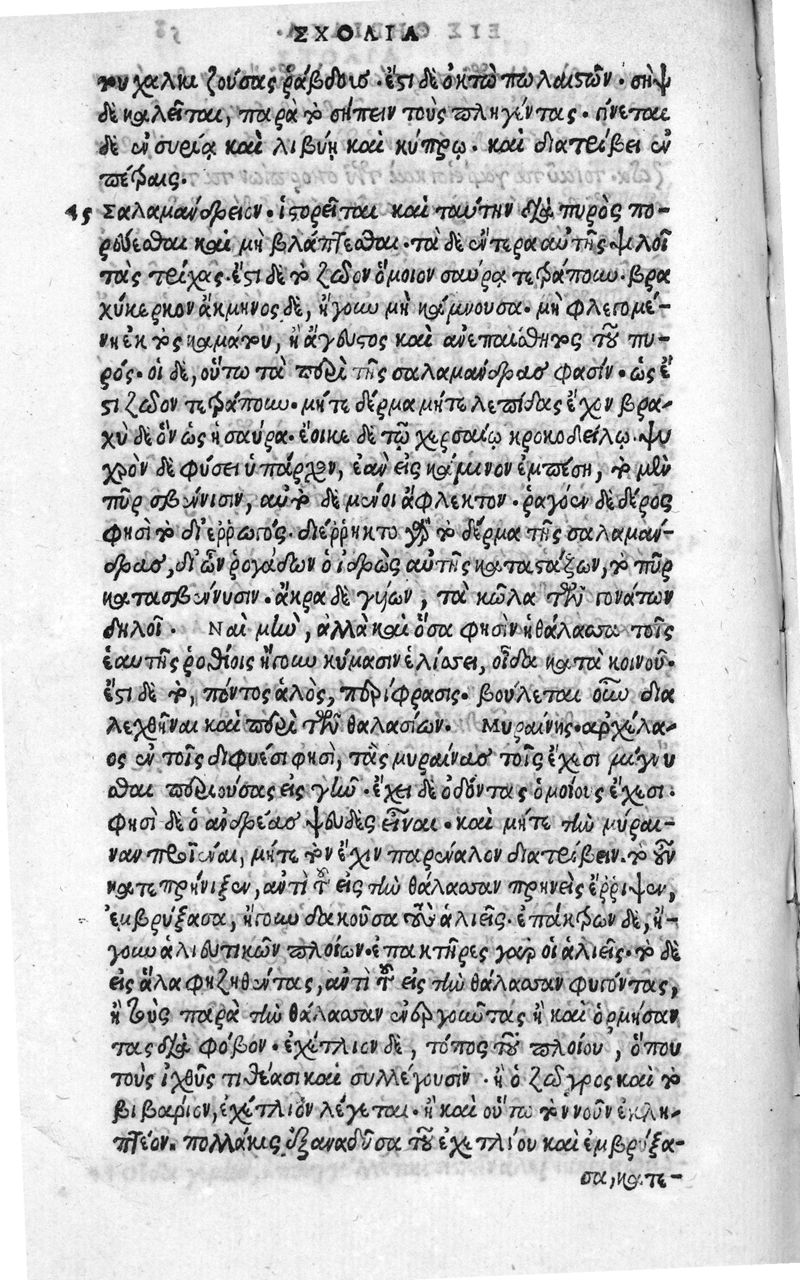 ΣΧΟΛΙΑ
το χαλκιζούσας ῥάβδοις· ἔστι δὲ ὀκτὼ παλαιστῶν· σὴψ
δὲ καλεῖται, παρὰ τὸ σήπειν τοὺς πληγέντας· γίνεται
δὲ ἐν συρίᾳ καὶ λιβύῃ καὶ κύπρῳ· καὶ διατρίβει ἐν
πέτραις.
Σαλαμάνδρειον· ἱστορεῖται καὶ ταύτην διὰ πυρὸς πο-
ρεύεσθαι καὶ μὴ βλάπτεσθαι· τὰ δὲ ἔντερα αὐτῆς ψιλοῖ
τὰς τρίχας· ἔστι δὲ τὸ ζῶον ὅμοιον σαύρᾳ τετράπουν· βρα
χύκερκον ἄκμηνος δὲ, ἤγουν μὴ κάμνουσα· μὴ φλεγομέ-
νη ἐκ τῆς καμάτου, ἢ ἄγευστος καὶ ἀνεπαίσθητος τοῦ πυ-
ρός· οἱ δὲ, οὕτω τὰ περὶ τῆς σαλαμάνδρας φασίν· ὡς ἔ
στι ζῶον τετράπουν· μήτε δέρμα μήτε λεπίδας ἔχον βρα-
χὺ δὲ ὂν ὡς ἡ σαύρα· ἔοικε δὲ τῷ χερσαίῳ κροκοδείλῳ· ψυ
χρὸν δὲ φύσει ὑπάρχον, ἐὰν εἰς κάμινον ἐμπέσῃ, τὸ μὲν
πῦρ σβέννυσιν, αὐτὸ δὲ μένοι ἄφλεκτον· ῥαγόεν δὲ δέρος
φησὶ τὸ διερρωγός· διέρρηκτο γὰρ τὸ δέρμα τῆς σαλαμάν-
δρας, δι' ὧν ῥογάδων ὁ ἱδρὼς αὐτῆς καταστάζων, τὸ πῦρ
κατασβέννυσιν· ἄκρα δὲ γυίων, τὰ κῶλα τῶν γονάτων
δηλοῖ. Ναὶ μὴν, ἀλλὰ καὶ ὅσα φησὶν ἡ θάλασσα τοῖς
ἑαυτῆς ῥοθίοις ἤγουν κύμασιν ἑλίσσει, οἶδα κατὰ κοινοῦ·
ἔστι δὲ τὸ, πόντος ἁλὸς, περίφρασις· βούλεται οὖν δια
λεχθῆναι καὶ περὶ τῶν θαλασίων. Μυραίνης· ἀρχέλα-
ος ἐν τοῖς διφυέσι φησὶ, τὰς μυραίνας τοῖς ἔχεσι μίγνυ
σθαι περιούσας εἰς γῆν· ἔχει δὲ ὀδόντας ὁμοίους ἔχεσι·
φησὶ δὲ ὁ ἀνδρέας ψευδὲς εἶναι· καὶ μήτε τὴν μύραι-
ναν προϊέναι, μήτε τὸν ἔχιν παρέναλον διατρίβειν. τὸ οὖν
κατεπρήνιξεν, ἀντὶ τοῦ εἰς τὴν θάλασσαν πρηνεῖς ἔρριψεν,
ἐμβρύξασα, ἤγουν δακοῦσα τοὺς ἁλιεῖς· ἐπάκτρων δὲ, ἤ-
γουν ἁλιευτικῶν πλοίων· ἐπακτῆρες γὰρ οἱ ἁλιεῖς· τὸ δὲ
εἰς ἅλα φηζηθέντας, ἀντὶ τοῦ εἰς τὴν θάλασσαν φυγόντας,
ἢ τοὺς παρὰ τὴν θάλασσαν ἐνεργοῦντας ἢ καὶ ὁρμήσαν
τας διὰ φόβον· ἐχέτλιον δὲ, τόπος τοῦ πλοίου, ὅπου
τοὺς ἰχθῦς τιθέασι καὶ συλλέγουσιν· ἢ ὁ ζῶγρος καὶ τὸ
βιβάριον, ἐχέτλιον λέγεται· ἢ καὶ οὕτω τὸν νοῦν ἐκλη-
πτέον. πολλάκις ἐξαναδῦσα τοῦ ἐχετλίου καὶ ἐμβρύξα-
σα, κατε-